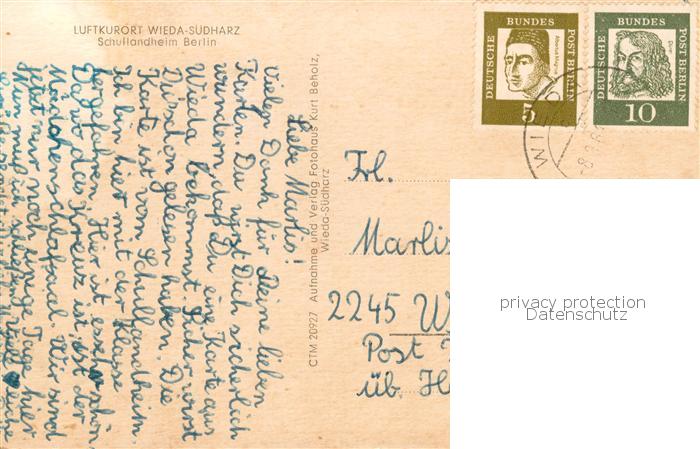 LUFTKURORT WIEDA-SÜDHARZ
Schullandheim Berlin
DEUTSCHE BUNDES POST BERLIN
Albertus Magnus
5
DEUTSCHE BUNDES POST BERLIN
Dürer
10
Liebe Marlis!
Vielen Dank für Deine lieben
Karten. Du wirst Dich sicherlich
wundern, daß Du eine Karte aus
Wieda bekommst. Sicher wirst
Du schon gelesen haben. Die
Karte ist vom Schullandheim.
Ich bin hier mit der Klasse
hingefahren. Hier ist es sehr schön.
Da wo das Kreuz ist, ist der
Mädchenschlafsaal. Wir sind
jetzt nur noch einige Tage hier.
Nun muß ich schließen.
CTM 20927 Aufnahme und Verlag Fotohaus Kurt Beholz,
Wieda-Südharz
Frl.
Marlis
2245 W
Post
üb. H
privacy protection
Datenschutz